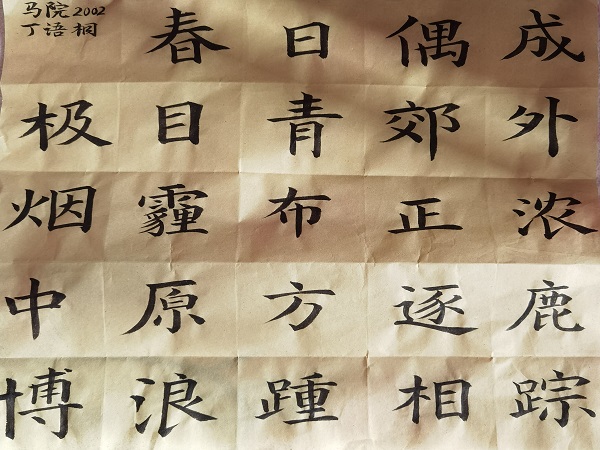 马院2002
丁语桐
春日偶成
极目青郊外
烟霾布正浓
中原方逐鹿
博浪踵相踪